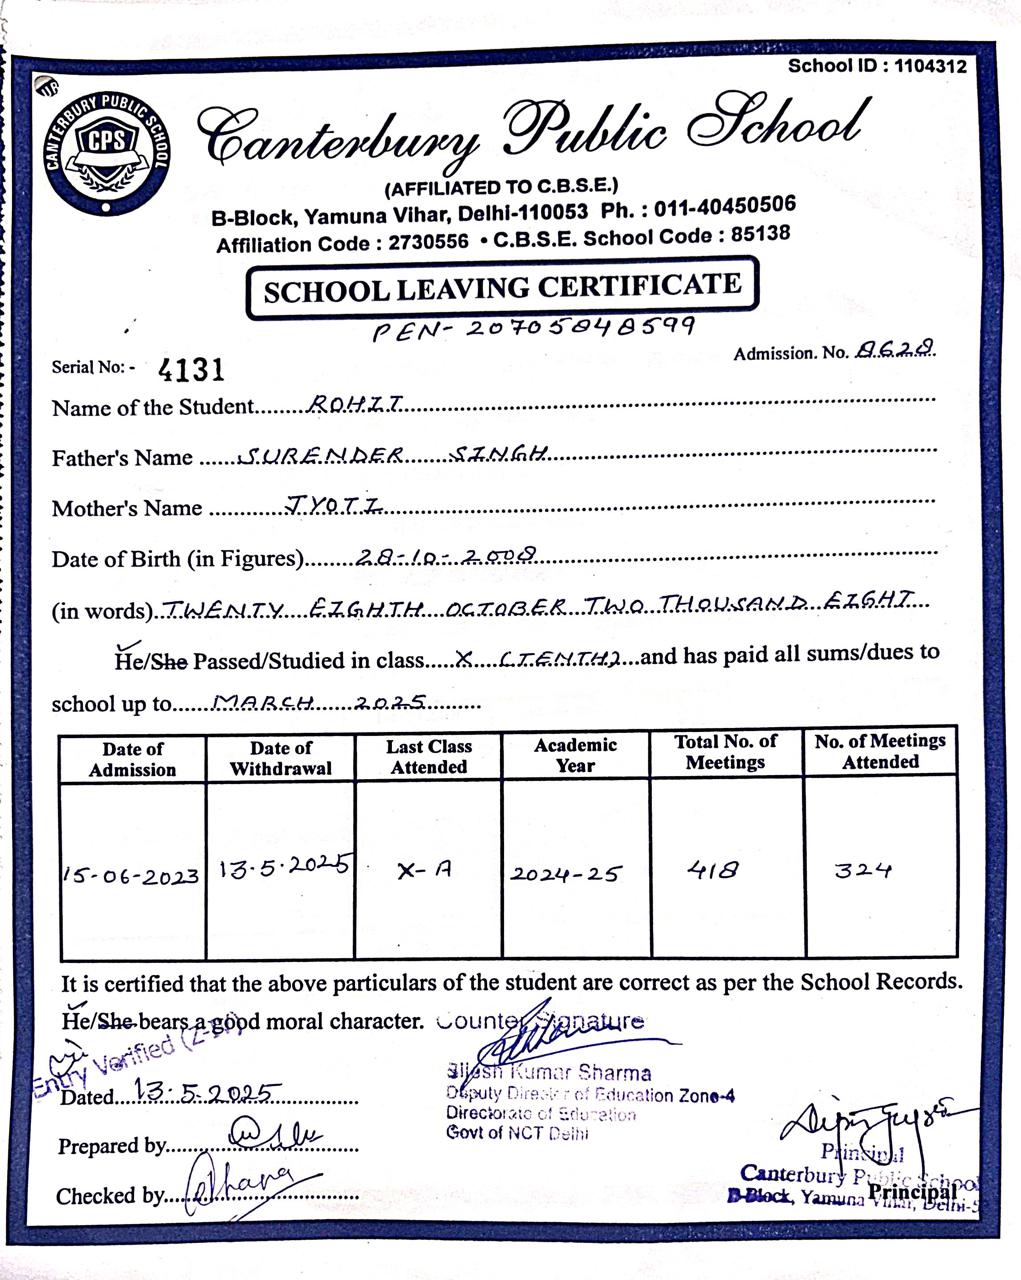 School ID : 1104312
CANTERBURY PUBLIC SCHOOL
CPS
Canterbury Public School
(AFFILIATED TO C.B.S.E.)
B-Block, Yamuna Vihar, Delhi-110053 Ph. : 011-40450506
Affiliation Code : 2730556 • C.B.S.E. School Code : 85138
SCHOOL LEAVING CERTIFICATE
PEN- 20705848599
Serial No:- 4131
Admission. No. 8628
Name of the Student ROHIT
Father's Name SURENDER SINGH
Mother's Name JYOTI
Date of Birth (in Figures) 28-10-2008
(in words) TWENTY EIGHTH OCTOBER TWO THOUSAND EIGHT
He/She Passed/Studied in class X (TENTH) and has paid all sums/dues to
school up to MARCH 2025
Date of Admission
Date of Withdrawal
Last Class Attended
Academic Year
Total No. of Meetings
No. of Meetings Attended
15-06-2023
13.5.2025
X-A
2024-25
418
324
It is certified that the above particulars of the student are correct as per the School Records.
He/She bears a good moral character.
Counter Signature
Entry Verified
Kumar Sharma
Deputy Director of Education Zone-4
Directorate of Education
Govt of NCT Delhi
Dated 13.5.2025
Prepared by
Checked by
Principal
Canterbury Public School
B-Block, Yamuna Vihar, Delhi-5
Principal